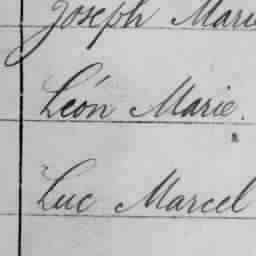 Joseph Marie
Léon Marie.
Luc Marcel